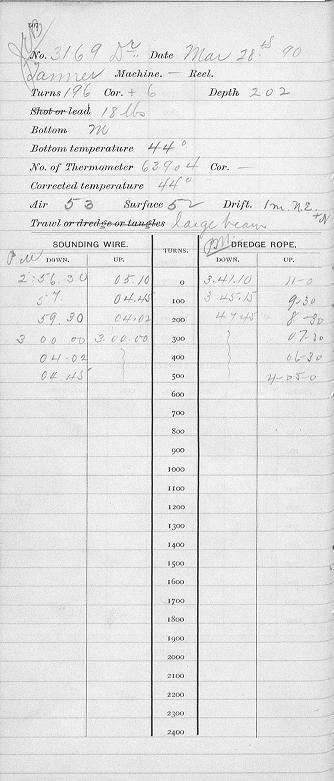 No. 3169 Dr. Date Mar 28th 90
Tanner Machine. — Reel.
Turns 196 Cor. + 6 Depth 202
Shot or lead 18 lbs
Bottom M
Bottom temperature 44°
No. of Thermometer 63904 Cor. —
Corrected temperature 44°
Air 53 Surface 52 Drift. 1 m. N.E. + N
Trawl or dredge or tangles large beam
SOUNDING WIRE. TURNS. PM DREDGE ROPE,
P M DOWN. UP. DOWN. UP.
2:56.30 05.10 0 3.41.10 11-0
57 04.45 100 3-45.15 9-30
59.30 04.02 200 47.45 8-30
3 00 00 3.00.00 300 07-30
04-02 400 06-30
04.45 500 4-05-0
600
700
800
900
1000
1100
1200
1300
1400
1500
1600
1700
1800
1900
2000
2100
2200
2300
2400